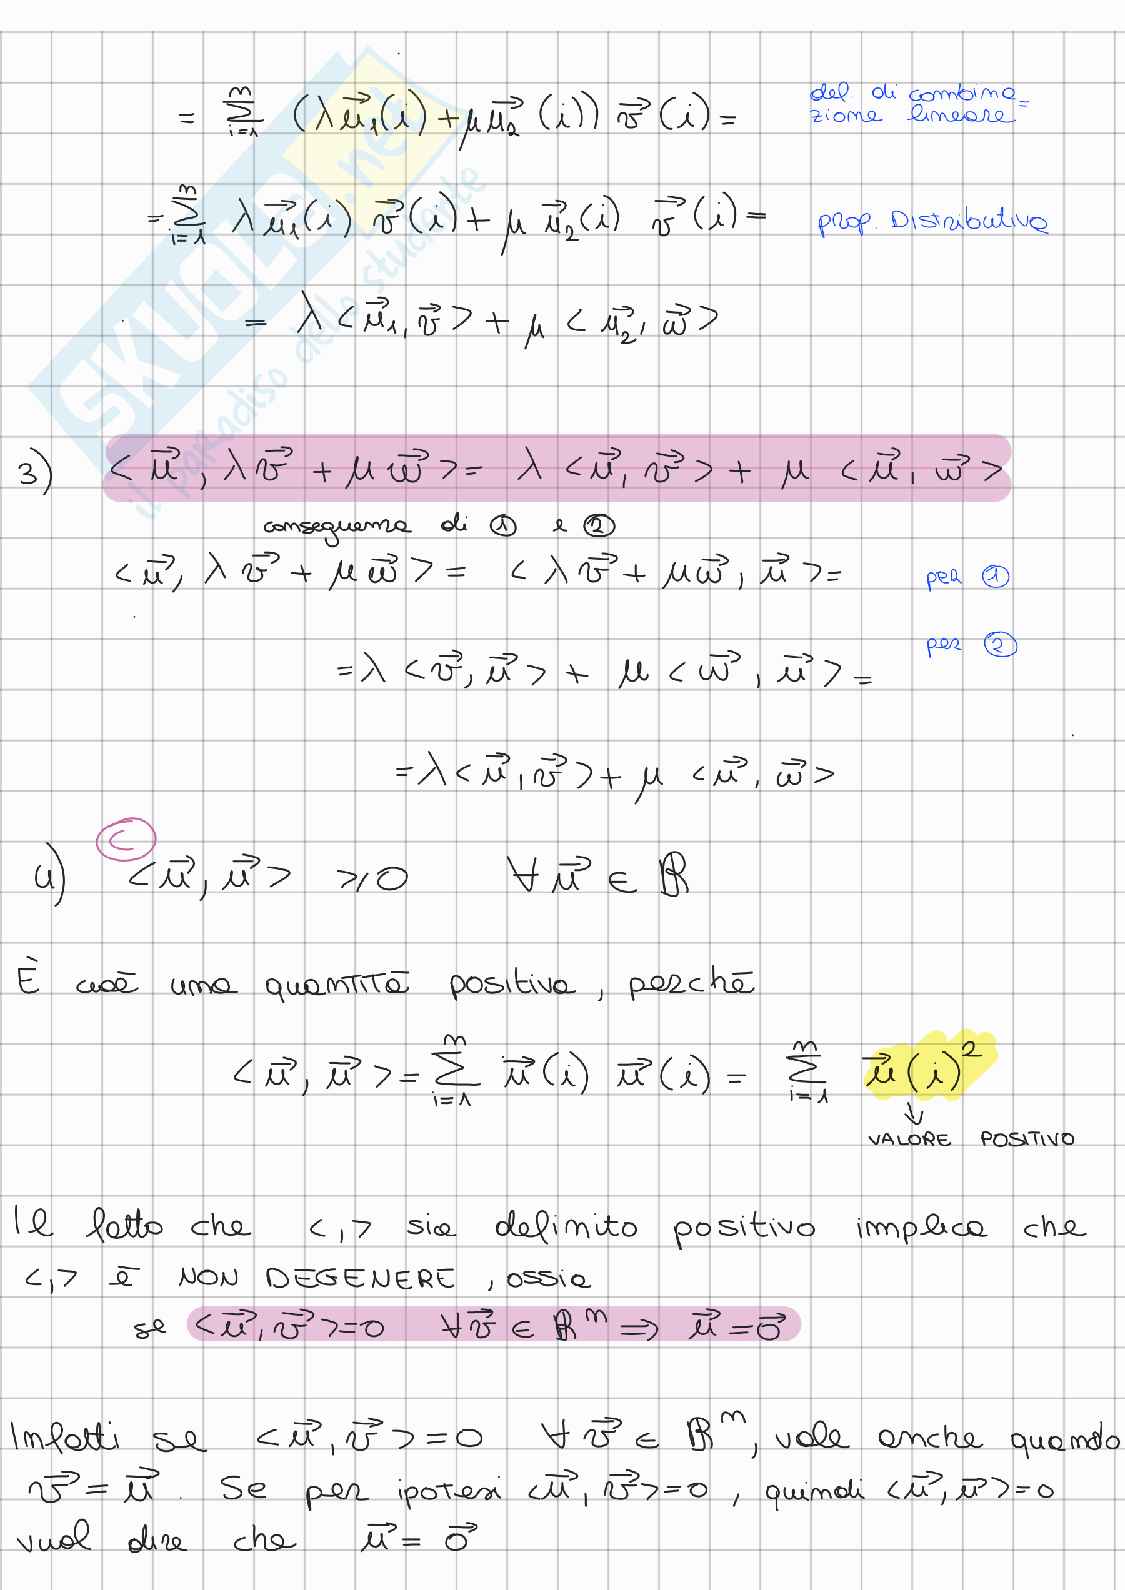 = Σ_{i=1}^{n} (λ u⃗₁(i) + μ u⃗₂(i)) v⃗(i) = del di combina=
zione lineare
= Σ_{i=1}^{n} λ u⃗₁(i) v⃗(i) + μ u⃗₂(i) v⃗(i) = prop. Distributiva
= λ <u⃗₁, v⃗> + μ <u⃗₂, w⃗>
3) <u⃗, λv⃗ + μw⃗> = λ <u⃗, v⃗> + μ <u⃗, w⃗>
conseguema di ① e ②
<u⃗, λv⃗ + μw⃗> = <λv⃗ + μw⃗, u⃗> = per ①
per ②
= λ <v⃗, u⃗> + μ <w⃗, u⃗> =
= λ <u⃗, v⃗> + μ <u⃗, w⃗>
C
4) <u⃗, u⃗> ⩾ 0 ∀ u⃗ ∈ ℝ
È cioè una quantità positiva, perchè
<u⃗, u⃗> = Σ_{i=1}^{n} u⃗(i) u⃗(i) = Σ_{i=1}^{n} u⃗(i)²
↓
VALORE POSITIVO
Il fatto che <,> sia definito positivo implica che
<,> è NON DEGENERE, ossia
se <u⃗, v⃗> = 0 ∀ v⃗ ∈ ℝⁿ ⇒ u⃗ = 0⃗
Infatti se <u⃗, v⃗> = 0 ∀ v⃗ ∈ ℝⁿ, vale anche quando
v⃗ = u⃗. Se per ipotesi <u⃗, v⃗> = 0, quindi <u⃗, u⃗> = 0
vuol dire che u⃗ = 0⃗
SKUOLA.net
il paradiso dello studente